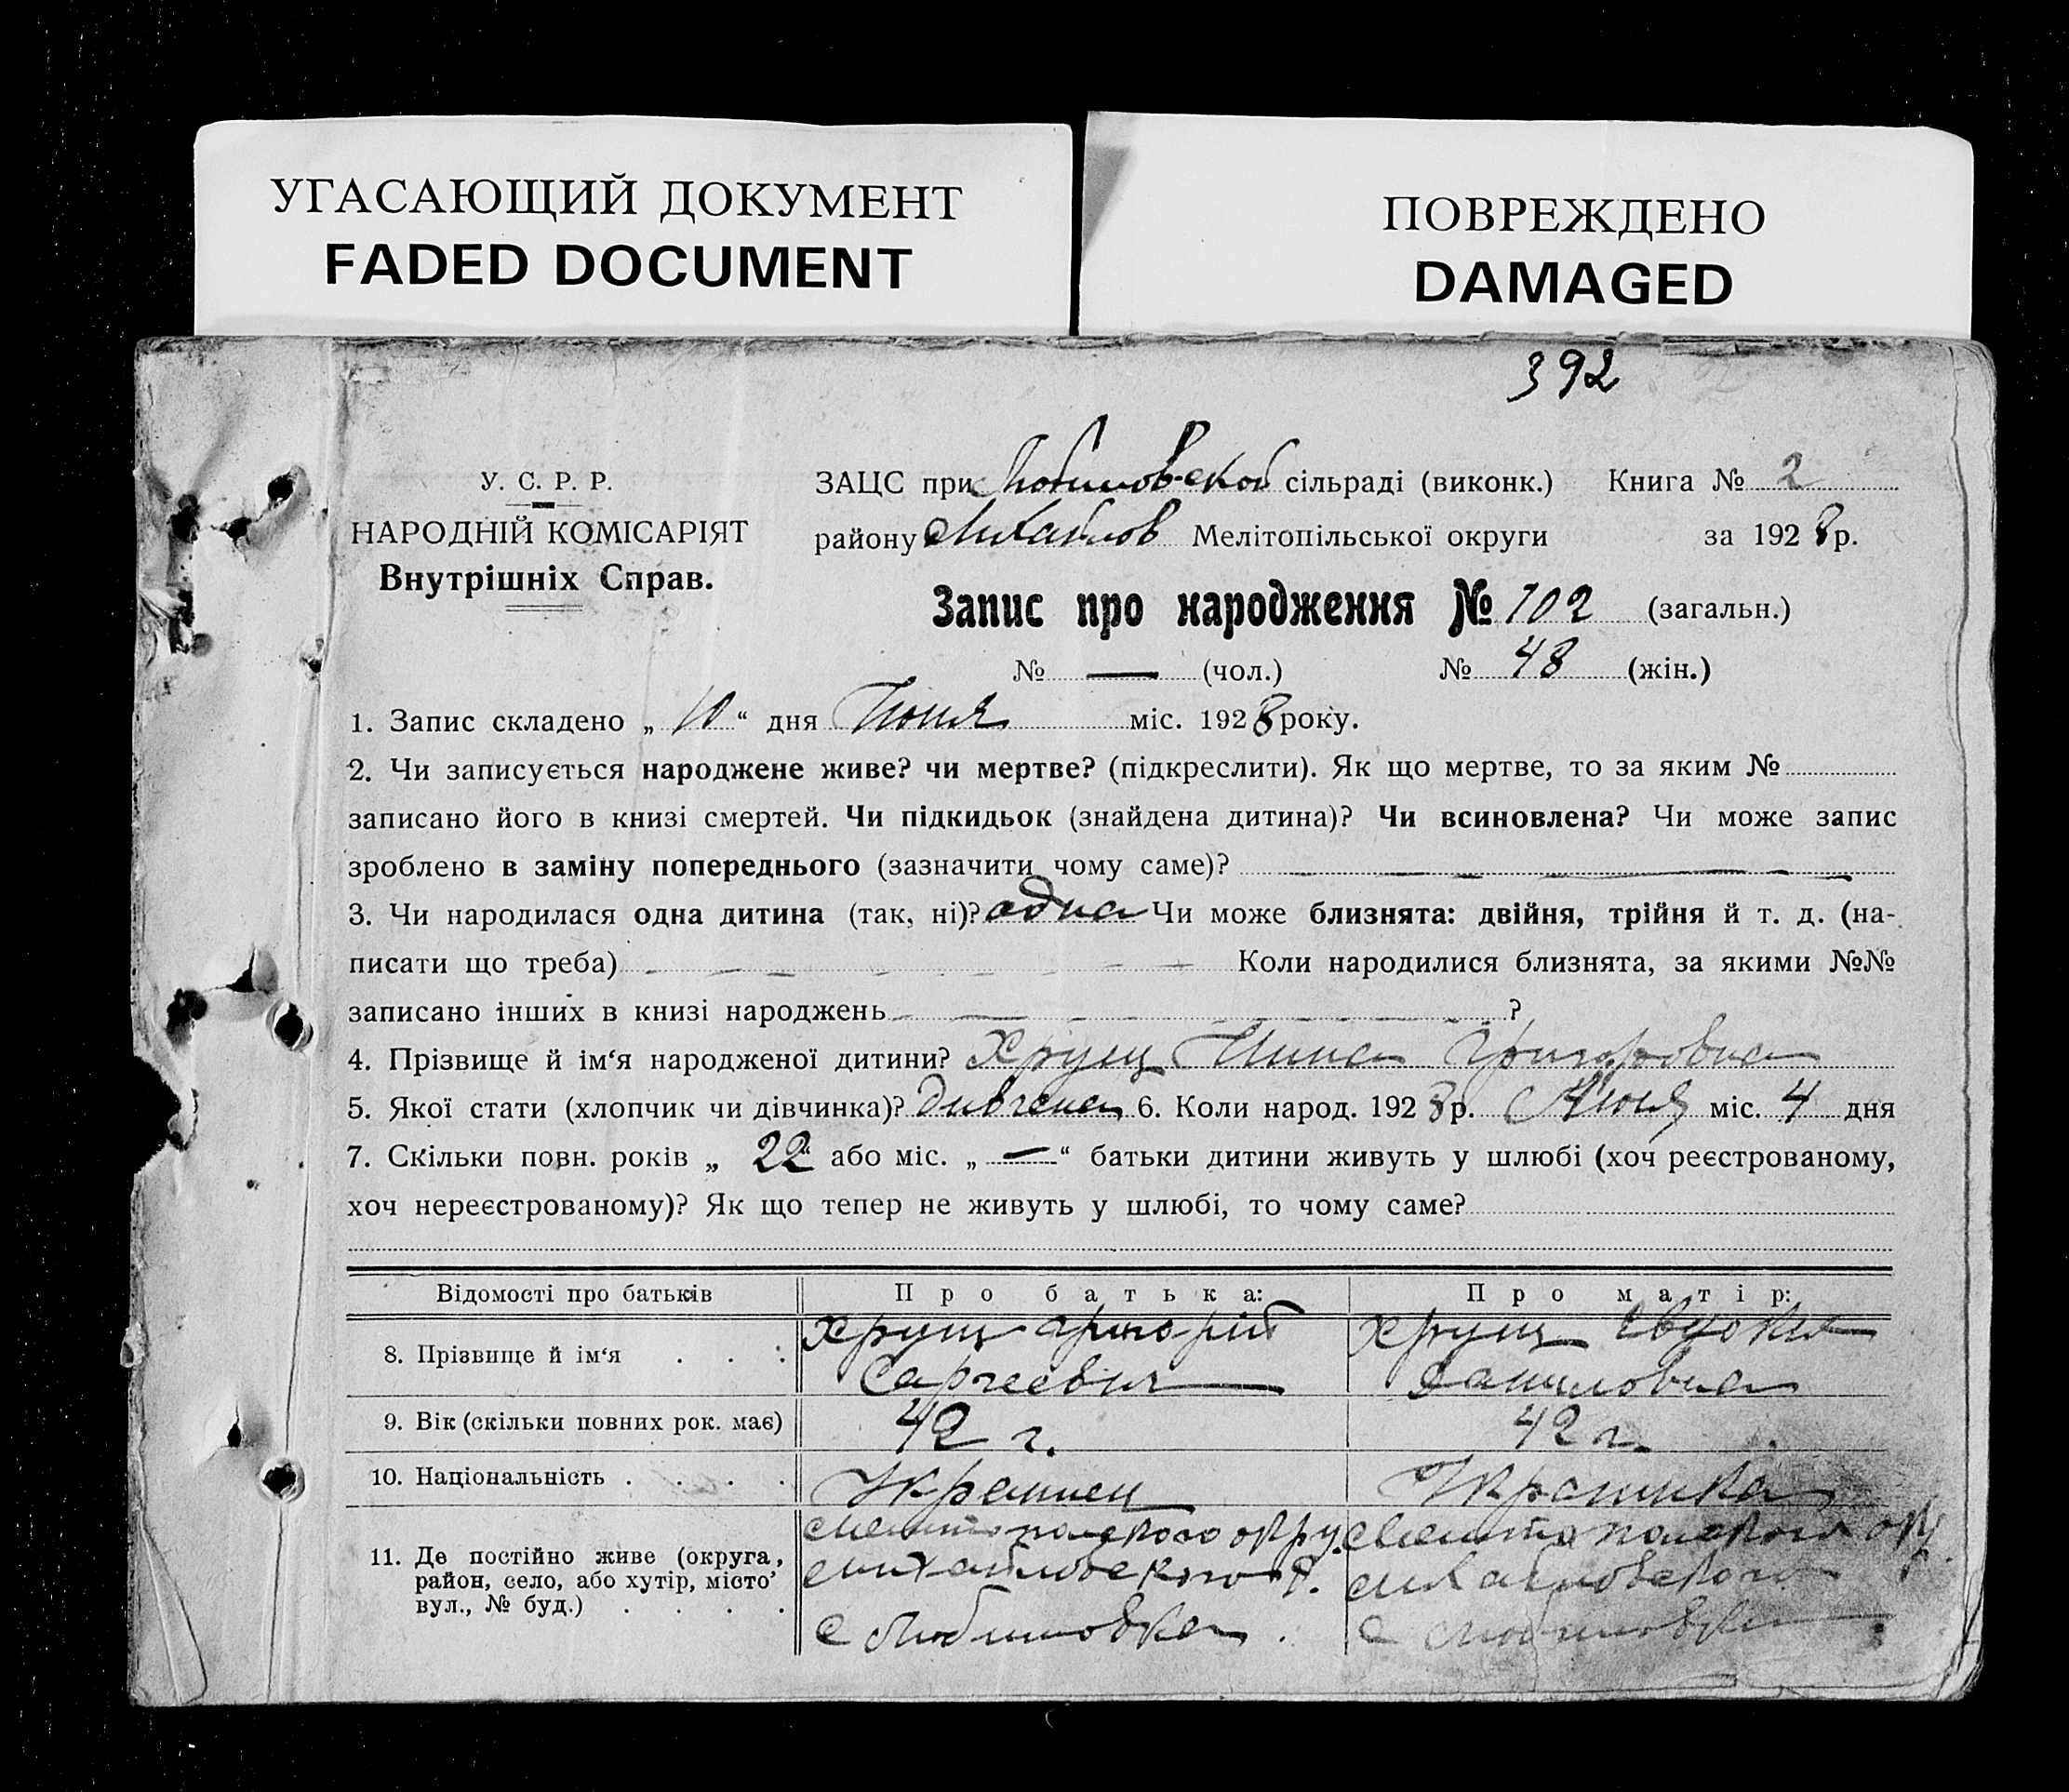 УГАСАЮЩИЙ ДОКУМЕНТ
FADED DOCUMENT
ПОВРЕЖДЕНО
DAMAGED
392
У. С. Р. Р.
НАРОДНІЙ КОМІСАРІЯТ
Внутрішніх Справ.
ЗАЦС при Любимовской сільраді (виконк.) Книга № 2
району Михайлов Мелітопільської округи за 1928 р.
Запис про народження № 102 (загальн.)
№ — (чол.) № 48 (жін.)
1. Запис складено „ 10 “ дня Июня міс. 1928 року.
2. Чи записується народжене живе? чи мертве? (підкреслити). Як що мертве, то за яким №
записано його в книзі смертей. Чи підкидьок (знайдена дитина)? Чи всиновлена? Чи може запис
зроблено в заміну попереднього (зазначити чому саме)?
3. Чи народилася одна дитина (так, ні)? одна Чи може близнята: двійня, трійня й т. д. (на-
писати що треба) Коли народилися близнята, за якими №№
записано інших в книзі народжень ?
4. Прізвище й ім‘я народженої дитини? Хрущ Нина Григоровна
5. Якої стати (хлопчик чи дівчинка)? 6. Коли народ. 1928 р. Июня міс. 4 дня
7. Скільки повн. років „ 22 “ або міс. „ — “ батьки дитини живуть у шлюбі (хоч реєстрованому,
хоч нереєстрованому)? Як що тепер не живуть у шлюбі, то чому саме?
Відомості про батьків
Про батька:
Про матір:
8. Прізвище й ім‘я . . :
Хрущ Григорій
Сергеевич
Хрущ Евдокия
Даниловна
9. Вік (скільки повних рок. має)
42 г.
42 г.
10. Національність . . . .
Украинец
Украинка
11. Де постійно живе (округа,
район, село, або хутір, місто,
вул., № буд.) . . . .
Мелитопольского окру.
Михайловского р.
с Любимовка.
Мелитопольского окр
Михайловского
с Любимовка